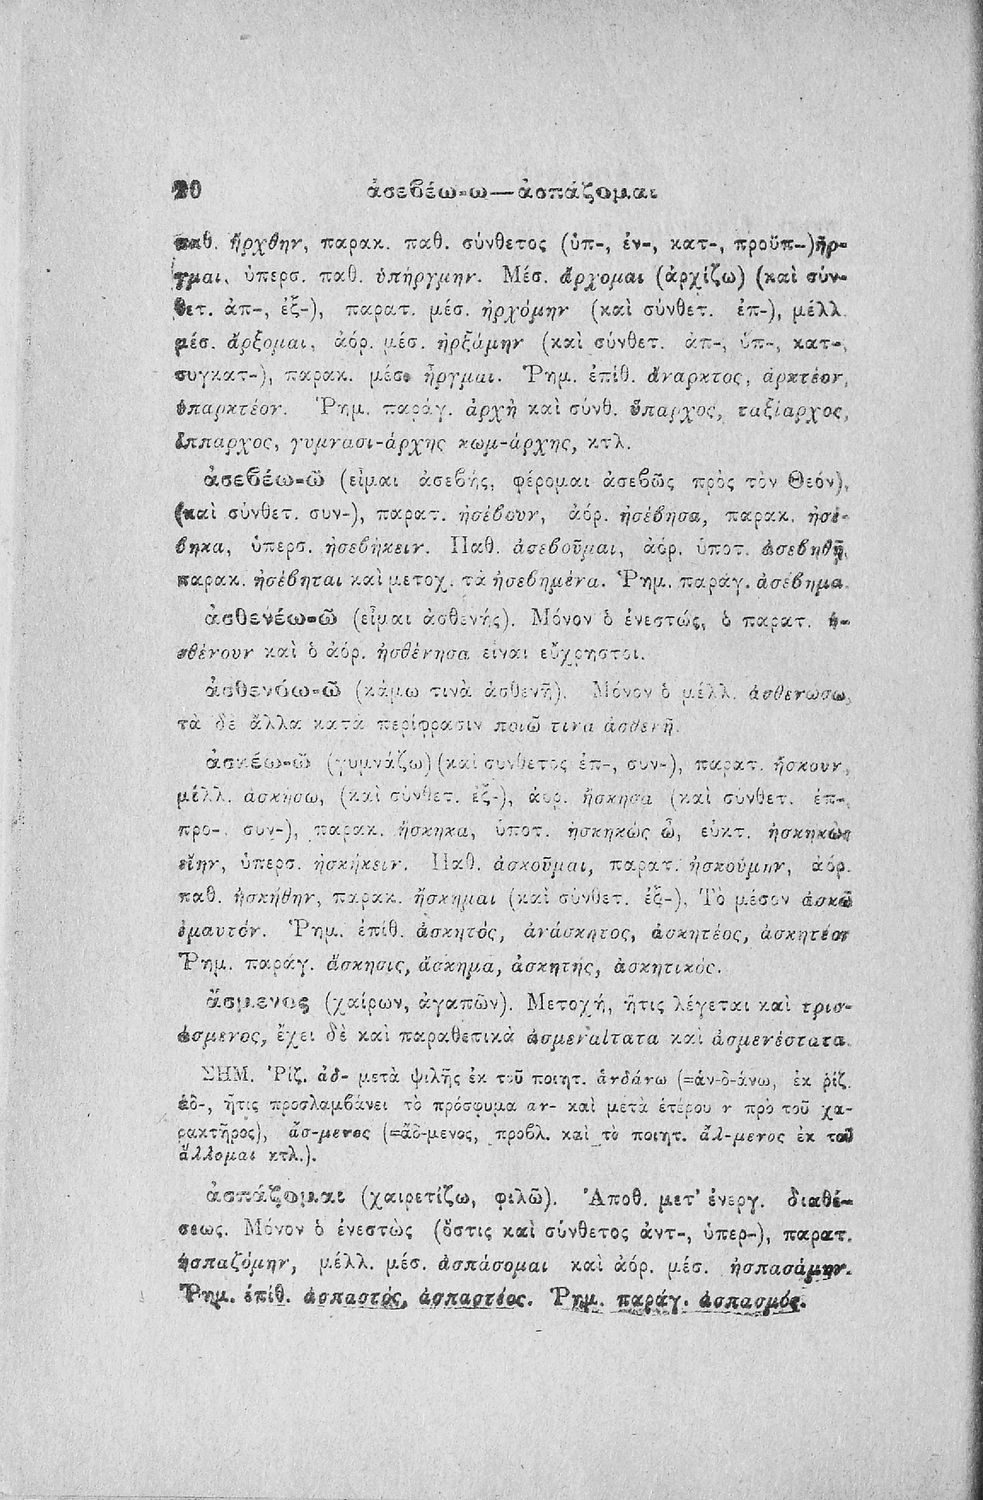 20 ἀσεβέω-ω—ἀσπάζομαι
παθ. ἤρχθην, παρακ. παθ. σύνθετος (ὑπ-, ἐν-, κατ-, προϋπ-)ἦρ-
γμαι, ὑπερσ. παθ. ὑπήργμην. Μέσ. ἄρχομαι (ἀρχίζω) (καὶ σύν-
θετ. ἀπ-, ἐξ-), παρατ. μέσ. ἠρχόμην (καὶ σύνθετ. ἐπ-), μέλλ.
μέσ. ἄρξομαι, ἀόρ. μέσ. ἠρξάμην (καὶ σύνθετ. ἀπ-, ὑπ-, κατ-,
συγκατ-), παρακ. μέσ. ἦργμαι. Ῥημ. ἐπίθ. ἄναρκτος, ἀρκτέον,
ὑπαρκτέον. Ῥημ. παράγ. ἀρχὴ καὶ σύνθ. ὕπαρχος, ταξίαρχος,
ἵππαρχος, γυμνασι-άρχης κωμ-άρχης, κτλ.
ἀσεβέω-ῶ (εἶμαι ἀσεβής, φέρομαι ἀσεβῶς πρὸς τὸν Θεόν),
(καὶ σύνθετ. συν-), παρατ. ἠσέβουν, ἀόρ. ἠσέβησα, παρακ. ἠσέ-
βηκα, ὑπερσ. ἠσεβήκειν. Παθ. ἀσεβοῦμαι, ἀόρ. ὑποτ. ἀσεβηθῇ,
παρακ. ἠσέβηται καὶ μετοχ. τὰ ἠσεβημένα. Ῥημ. παράγ. ἀσέβημα.
ἀσθενέω-ῶ (εἶμαι ἀσθενής). Μόνον ὁ ἐνεστώς, ὁ παρατ. ἠ-
σθένουν καὶ ὁ ἀόρ. ἠσθένησα εἶναι εὔχρηστοι.
ἀσθενόω-ῶ (κάμω τινὰ ἀσθενῆ). Μόνον ὁ μέλλ. ἀσθενώσω,
τὰ δὲ ἄλλα κατὰ περίφρασιν ποιῶ τινα ἀσθενῆ.
ἀσκέω-ῶ (γυμνάζω) (καὶ σύνθετος ἐπ-, συν-), παρατ. ἤσκουν,
μέλλ. ἀσκήσω, (καὶ σύνθετ. ἐξ-), ἀόρ. ἤσκησα (καὶ σύνθετ. ἐπ-,
προ-, συν-), παρακ. ἤσκηκα, ὑποτ. ἠσκηκὼς ὦ, εὐκτ. ἠσκηκὼς
εἴην, ὑπερσ. ἠσκήκειν. Παθ. ἀσκοῦμαι, παρατ. ἠσκούμην, ἀόρ.
παθ. ἠσκήθην, παρακ. ἤσκημαι (καὶ σύνθετ. ἐξ-), Τὸ μέσον ἀσκῶ
ἐμαυτόν. Ῥημ. ἐπίθ. ἀσκητός, ἀνάσκητος, ἀσκητέος, ἀσκητέον
Ῥημ. παράγ. ἄσκησις, ἄσκημα, ἀσκητής, ἀσκητικός.
ἄσμενος (χαίρων, ἀγαπῶν). Μετοχή, ἥτις λέγεται καὶ τρισ-
άσμενος, ἔχει δὲ καὶ παραθετικὰ ἀσμεναίτατα καὶ ἀσμενέστατα.
ΣΗΜ. Ῥίζ. ἁδ- μετὰ ψιλῆς ἐκ τοῦ ποιητ. ἁνδάνω (=ἁν-δ-άνω, ἐκ ῥίζ.
ἁδ-, ἥτις προσλαμβάνει τὸ πρόσφυμα αν- καὶ μετὰ ἑτέρου ν πρὸ τοῦ χα-
ρακτῆρος), ἄσ-μενος (=ἄδ-μενος, προβλ. καὶ τὸ ποιητ. ἄλ-μενος ἐκ τοῦ
ἅλλομαι κτλ.).
ἀσπάζομαι (χαιρετίζω, φιλῶ). Ἀποθ. μετ' ἐνεργ. διαθέ-
σεως. Μόνον ὁ ἐνεστὼς (ὅστις καὶ σύνθετος ἀντ-, ὑπερ-), παρατ.
ἠσπαζόμην, μέλλ. μέσ. ἀσπάσομαι καὶ ἀόρ. μέσ. ἠσπασάμην.
Ῥημ. ἐπίθ. ἀσπαστός, ἀσπαστέος. Ῥημ. παράγ. ἀσπασμός.